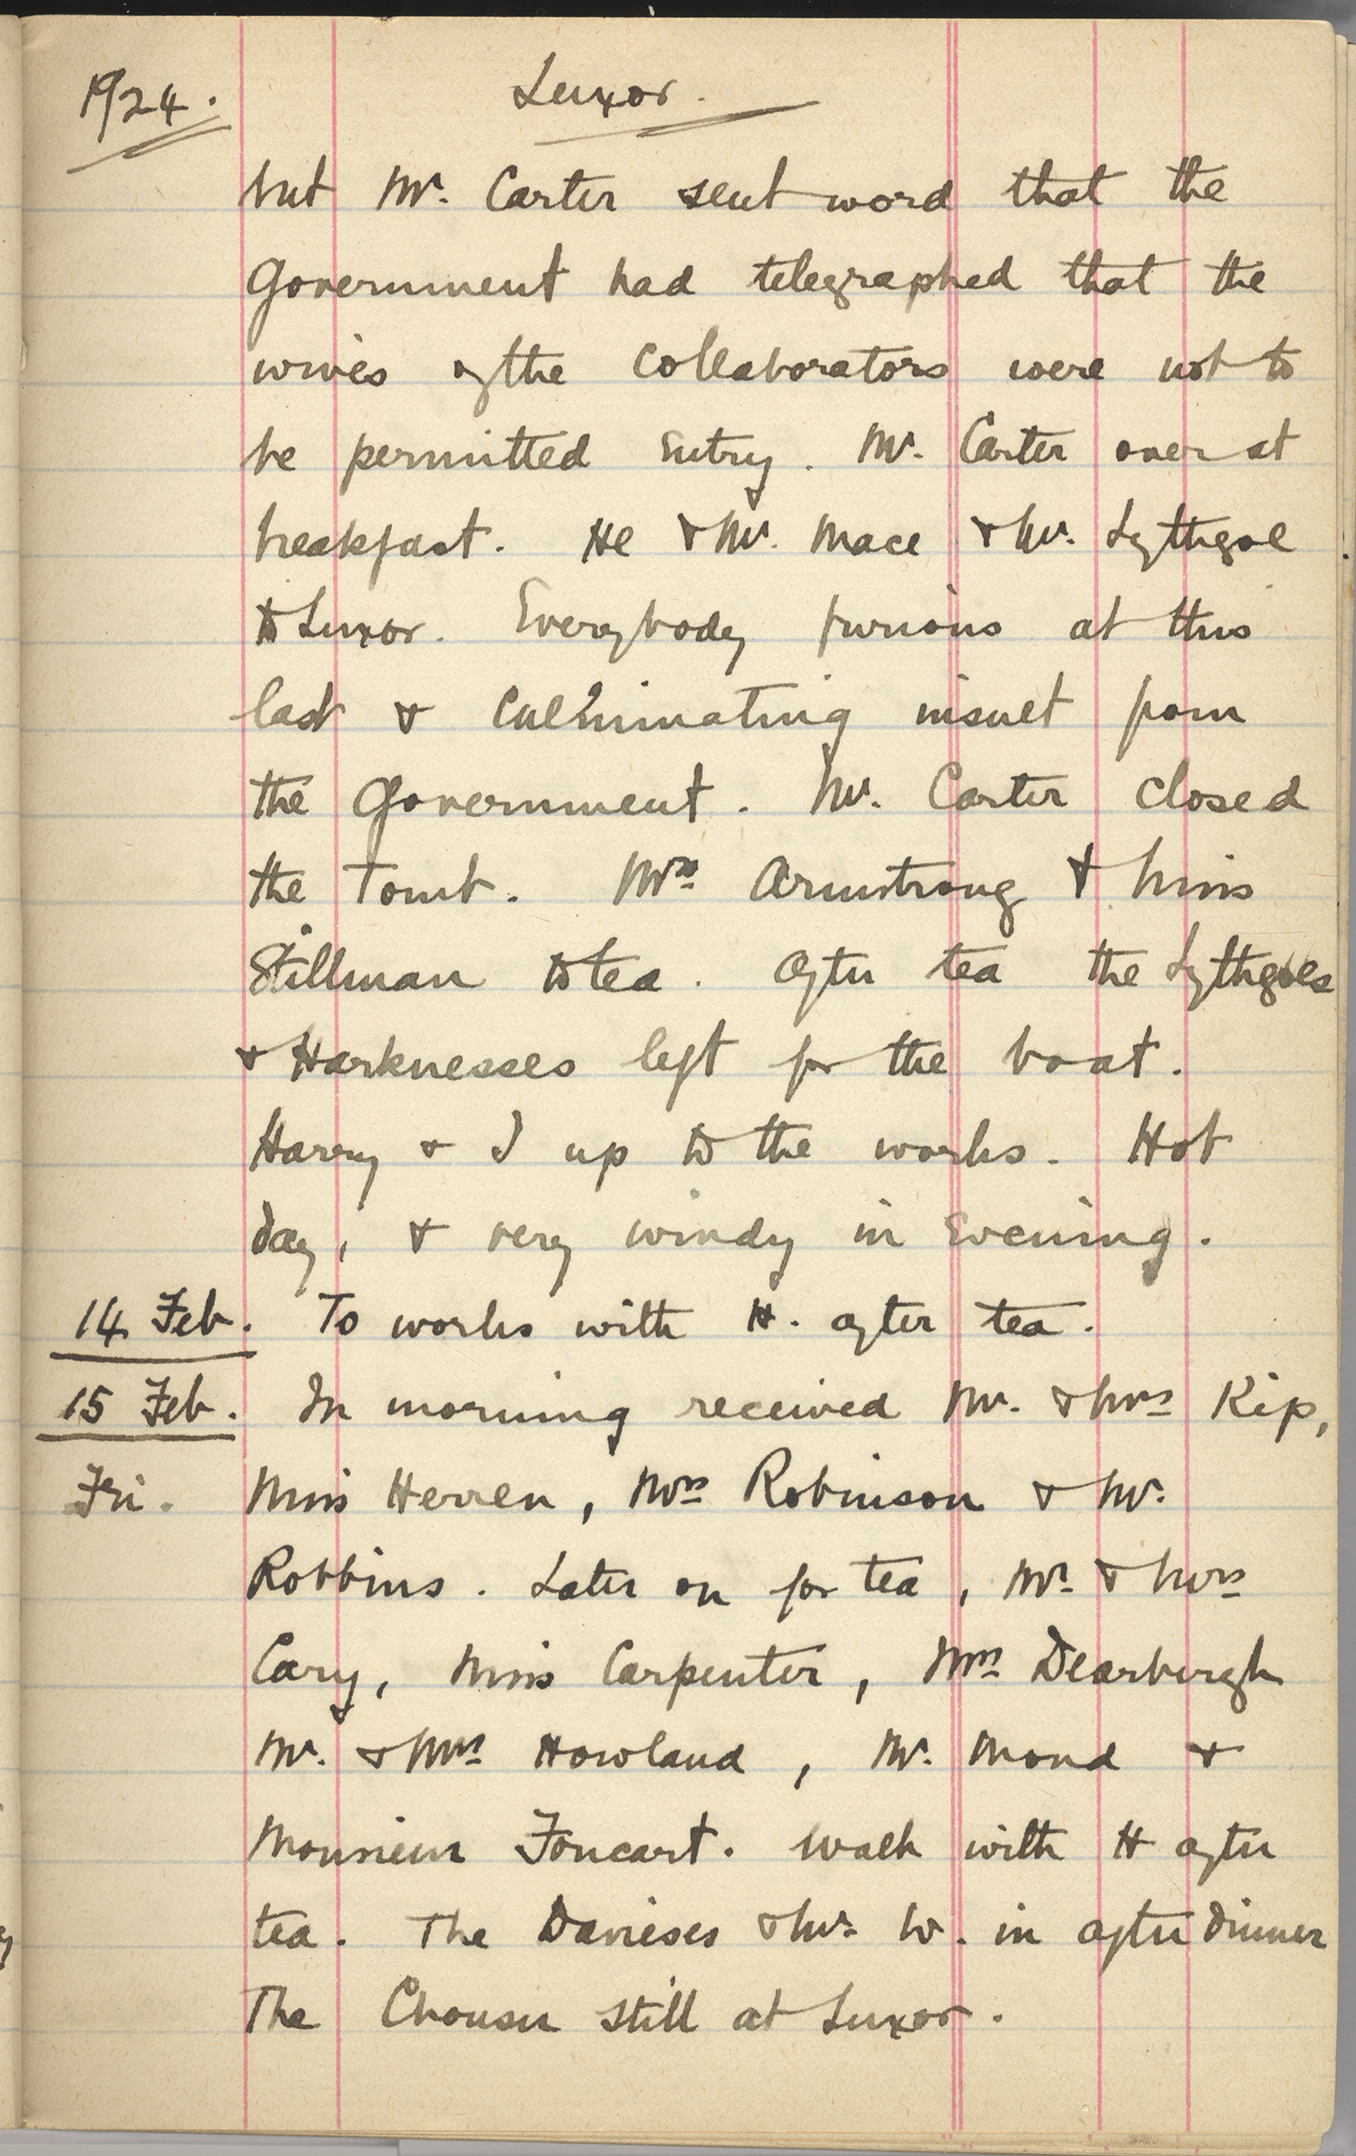 1924.
Luxor.
but Mr. Carter sent word that the
Government had telegraphed that the
wives of the Collaborators were not to
be permitted entry. Mr. Carter over at
breakfast. He & Mr. Mace & Mr. Lythgoe
to Luxor. Everybody furious at this
last & culminating insult from
the Government. Mr. Carter closed
the Tomb. Mrs Armstrong & Miss
Stillman to tea. After tea the Lythgoes
& Harknesses left for the boat.
Harry & I up to the works. Hot
day, & very windy in evening.
14 Feb. To works with H. after tea.
15 Feb. In morning received Mr. & Mrs Kip,
Fri. Miss Herren, Mrs Robinson & Mr.
Robbins. Later on for tea, Mr. & Mrs
Cary, Miss Carpenter, Mrs Dearbergh
Mr. & Mrs Howland, Mr. Mond &
Monsieur Foucart. Walk with H after
tea. The Davieses & Mr. W. in after dinner
The Chonsu still at Luxor.